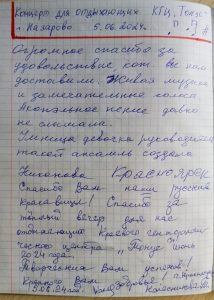 Концерт для отдыхающих КГЦ "Тонус"
г. Назарово 5.06.2024г.
Огромное спасибо за
удовольствие кот. вы нам
доставили. Живая музыка
и замечательные голоса.
Акапельное пение давно
не слышала.
Умница девочка руководитель
такой ансамбль создала
Никанова Красноярск
Спасибо Вам наши русские
красавицы! Спасибо за
тёплый вечер для нас
отдыхающих Краевого геронтологи-
ческого центра "Тонус" июнь
2024 года.
Творческих Вам успехов!
Крепкого Вам здоровья!
5.06.24 года.